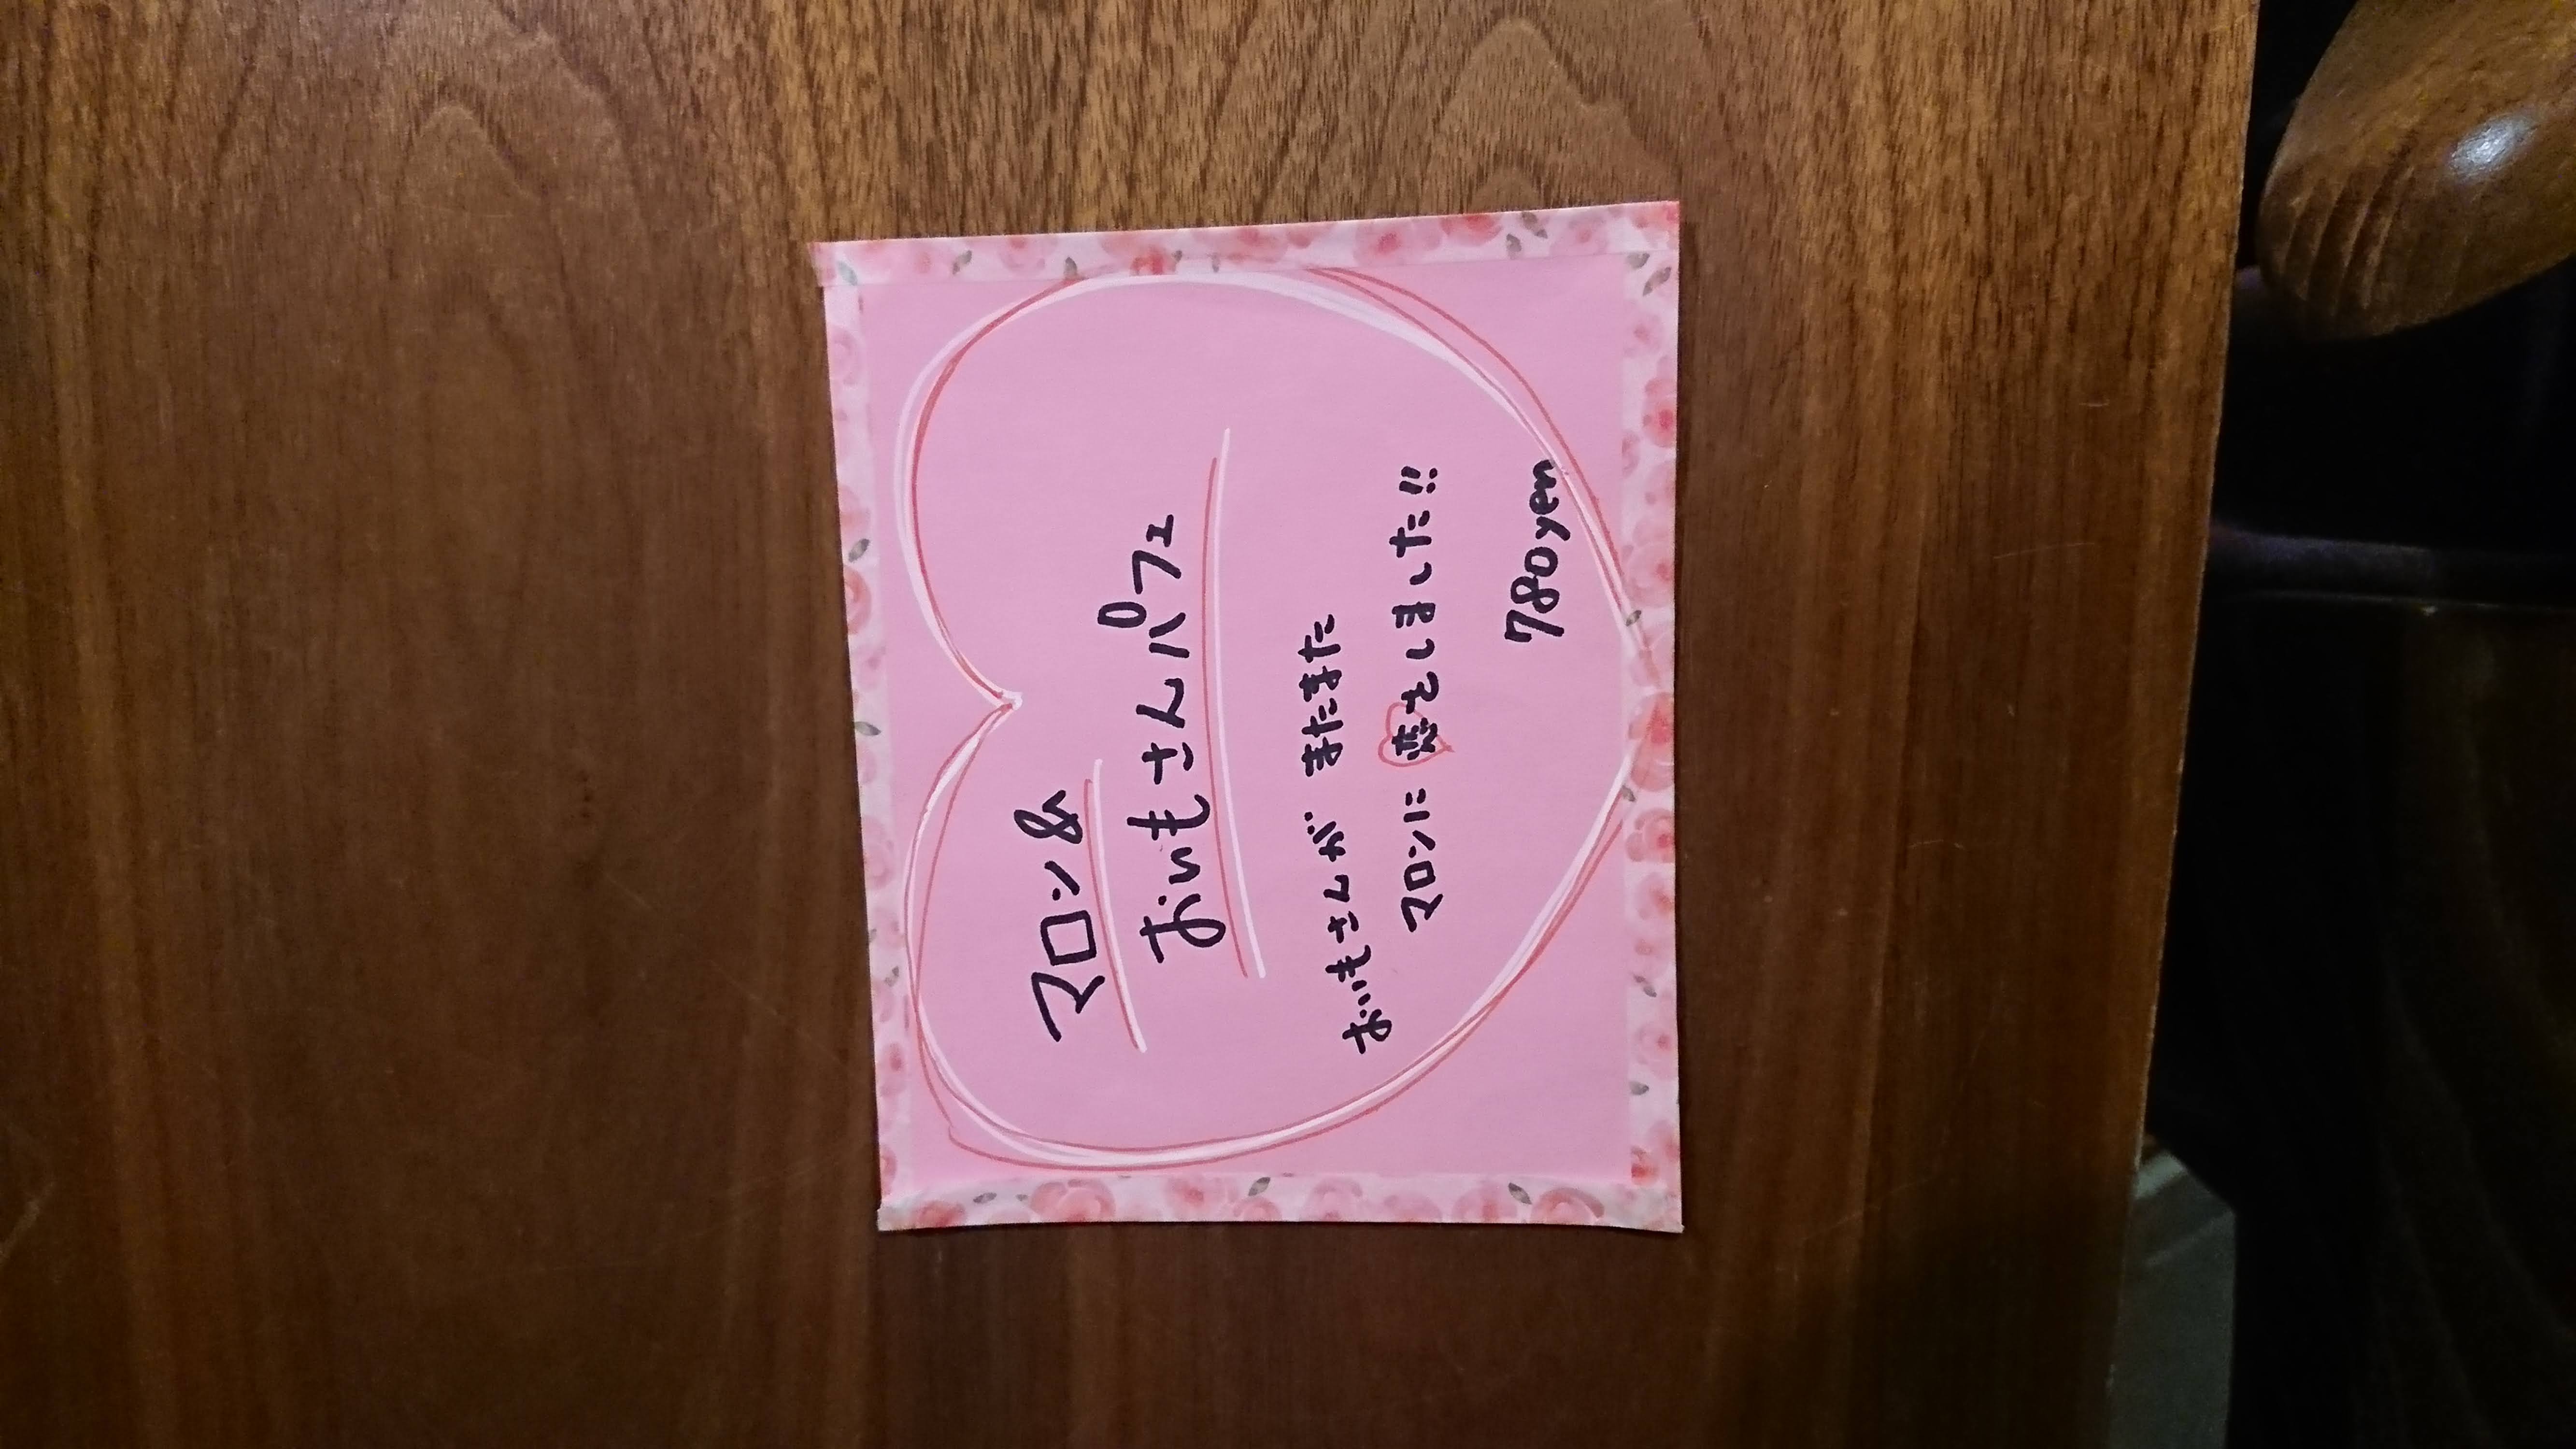 マロン&
おいもさんパフェ
おいもさんが またまた
マロンに 恋をしました!!
780yen